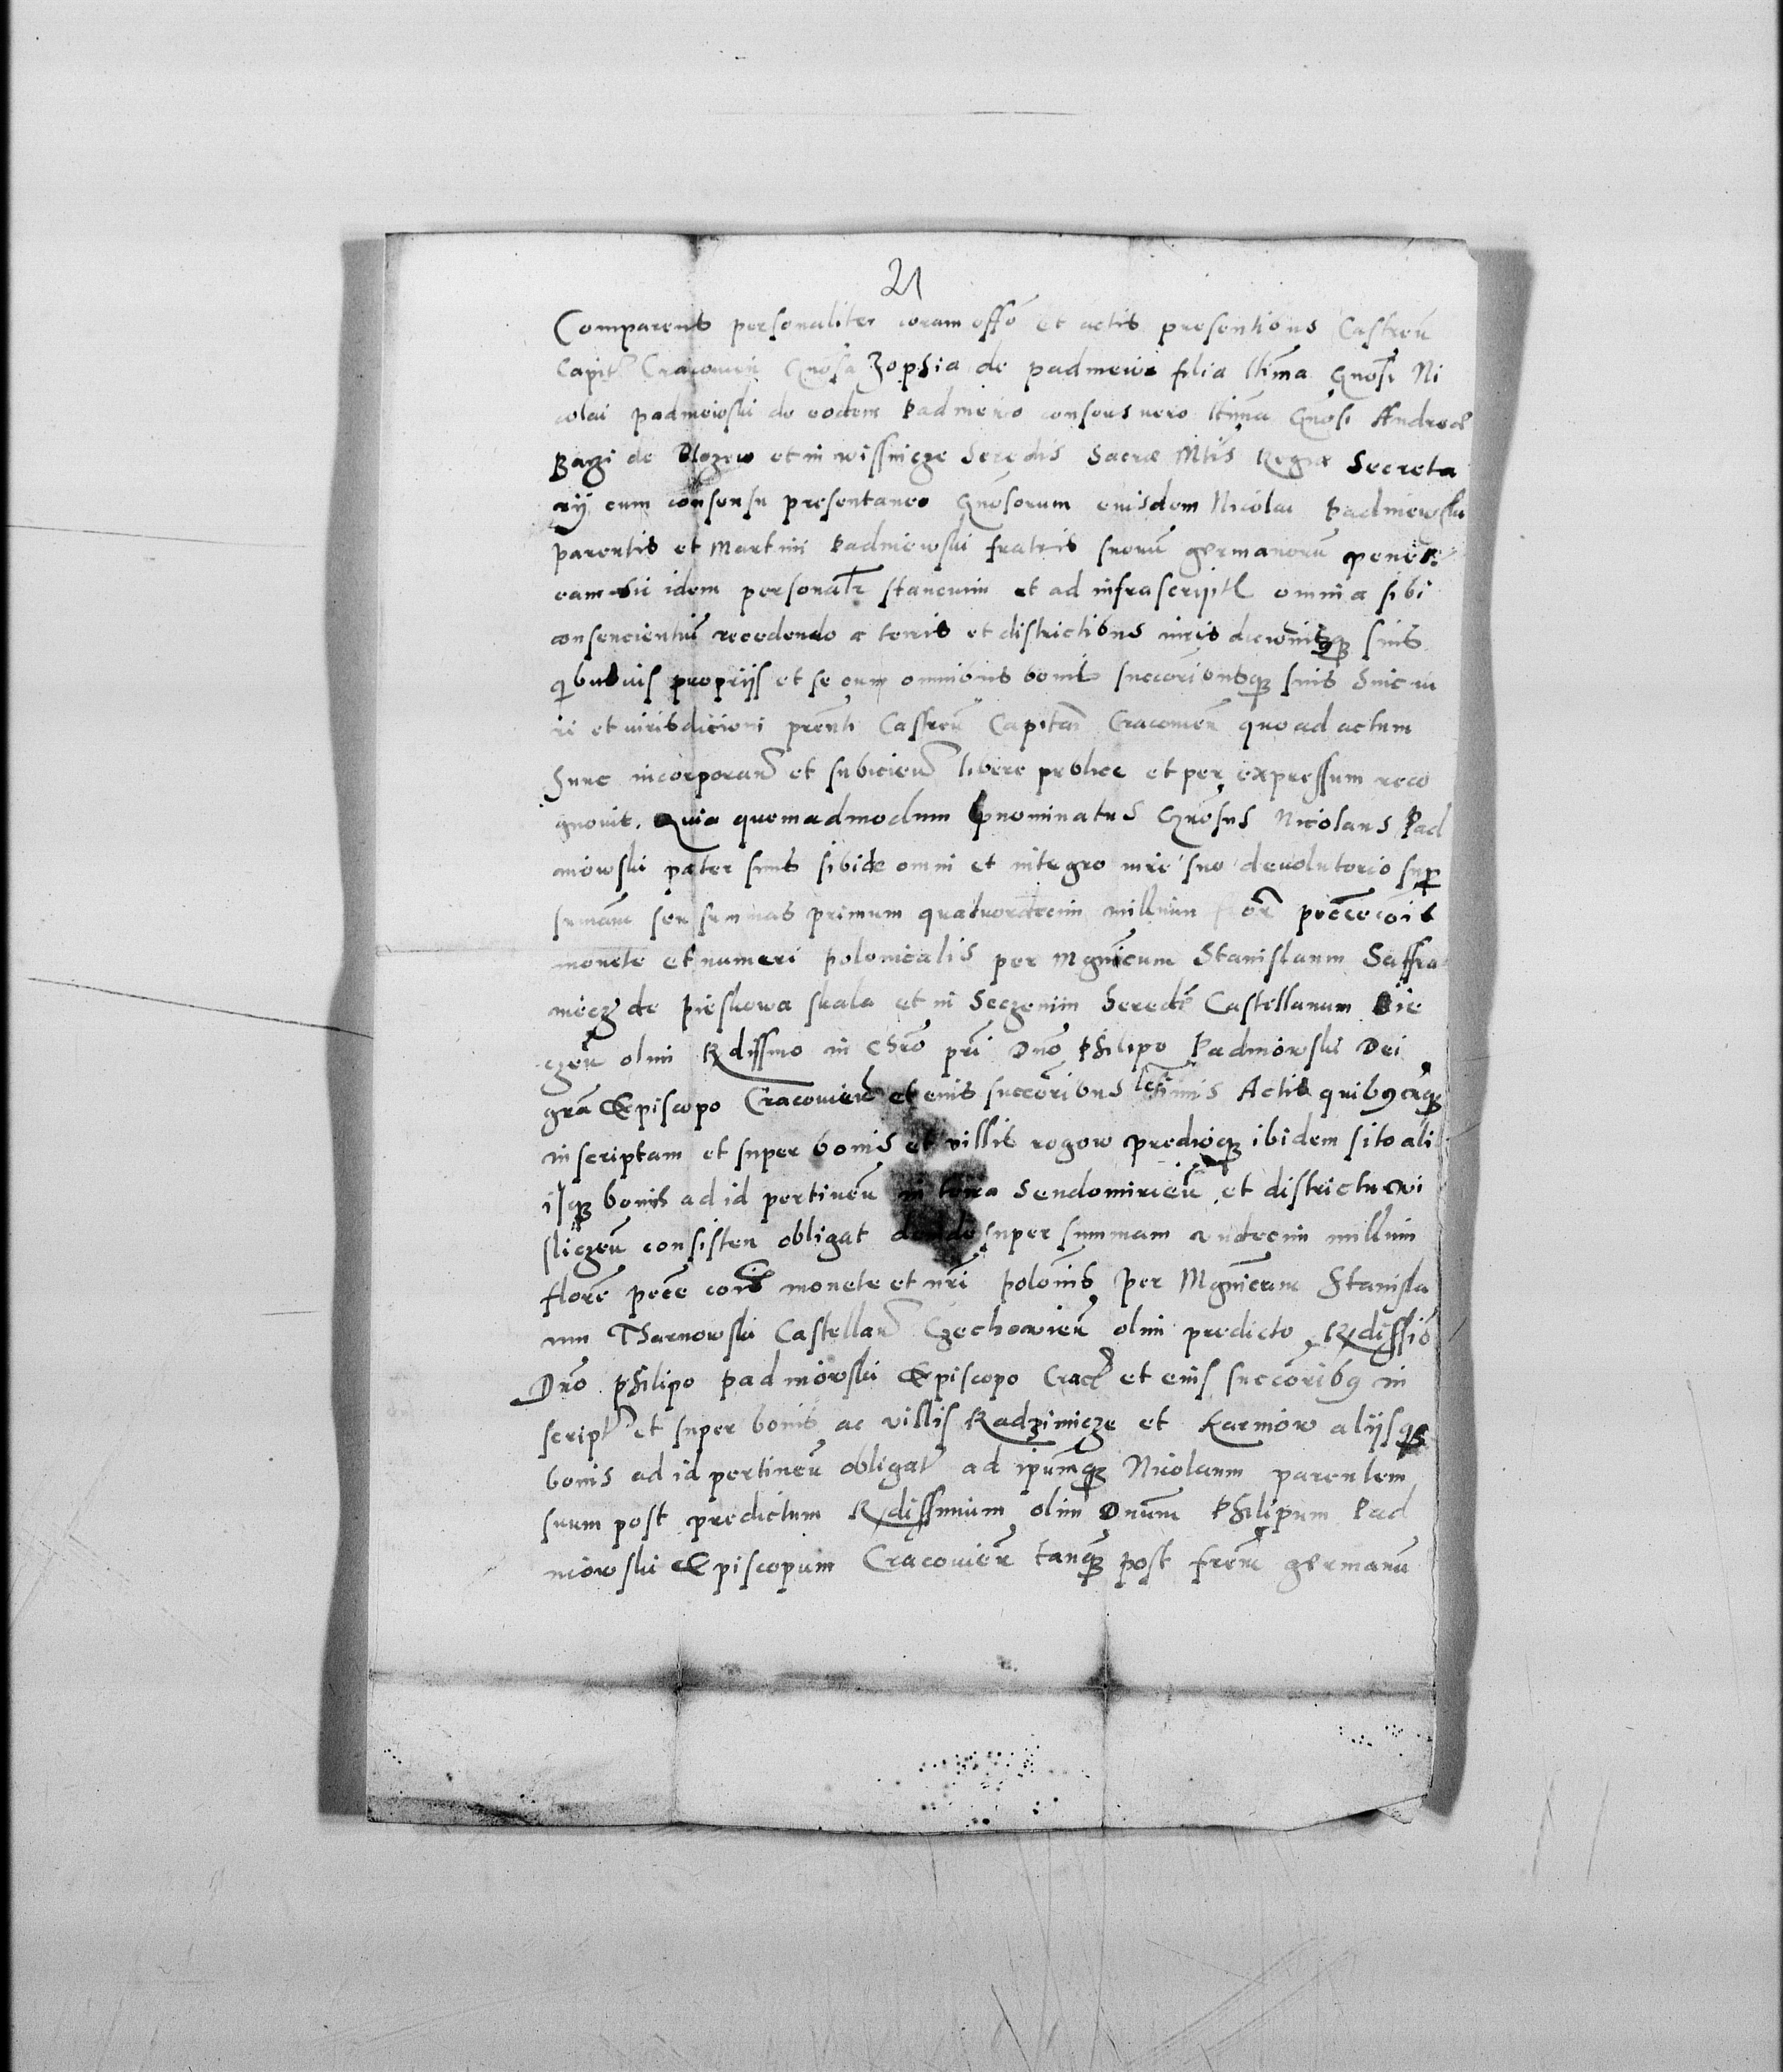 21
Comparens personaliter coram offō et actis presentibus Castreñ
Capit Cracovieñ Gnōsa Zophia de padmewo filia ltīma Gnōsi Ni
colai padmewski de eodem Padmewo consors vero ltīma Gnōsi Andreæ
Barzi de Blozew et in wissnicze heredis Sacræ Mtis Regiæ Secreta
rij cum consensu presentaneo Gnōsorum eiusdem Nicolai Padniewski
parentis et Martini Padniewski fratris suorū germanorū penes
eam ibidem personalr stancium et ad infrascript omnia sibi
consencientiū recedendo a terris et districtibus iuris suis
quibusvis proprijs et se cum omnibus bonis succoribusq suis huic iu
ri et iurisdicioni prēnti Castreñ Capitān Cracovieñ quo ad actum
hunc incorporan et subicien libere publice et per expressum reco
gnovit. Quia quemadmodum prenominatus Gnōsus Nicolaus Pad
niewski pater suus sibi de omni et integro iure suo devolutorio supr
sumām seu summas primum quatuordecim millium flor peccē cōis
monete et numeri polonicalis per Mgnīcum Stanislaum Saffra
niecz de pieskowa skala et in Seczemin heredē Castellanum Bie
czeñ olim Rdissmo in Chrō prī Dnō Philipo Padniowski Dei
grā Episcopo Cracovieñ et eius succōribus ltīmis Actis quibuscuq
inscriptam et super bonis et villis rogow predioq ibidem sito ali
isq bonis ad id pertineñ in terra Sendomirieñ et districtu wi
sliczeñ consisteñ obligat deinde super summam undecim millium
florē pecē cōis monete et nrī polonīs per Mgnīcum Stanisla
um Tharnowski Castellan Czechovieñ olim predicto Rdissīo
Dnō Philipo padniowski Episcopo Crac et eius succōribus in
script et super bonis ac villis Radzimicze et Karniow alijsq
bonis ad id pertineñ obligat ad ipūmq Nicolaum parentem
suum post predictum Rdissimum olim Dnūm Philipum Pad
niowski Episcopum Cracovieñ tanq post frēm germanū